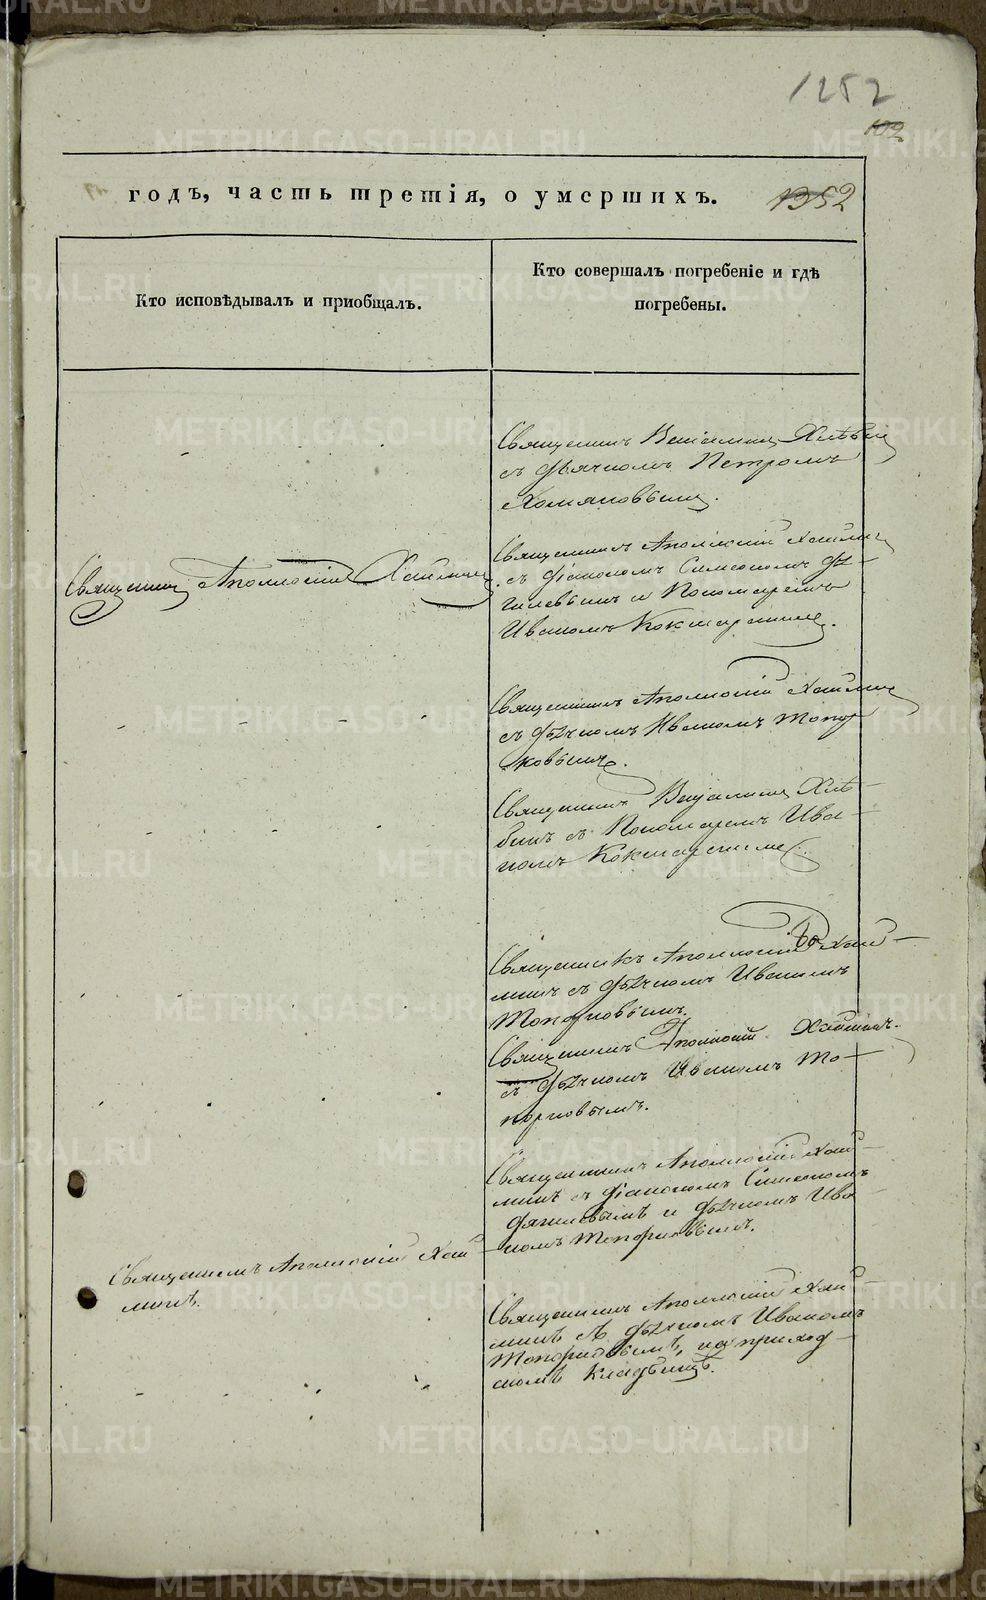 1252
102
годъ, часть третія, о умершихъ.
1352
Кто исповѣдывалъ и приобщалъ.
Кто совершалъ погребеніе и гдѣ
погребены.
Священникъ Веніаминъ Хлѣбин
съ дьячкомъ Петромъ
Хомяковымъ.
Священникъ Аполлоній Хаймин
Священникъ Аполлоній Хаймин
съ діакономъ Симеономъ Дя-
гилевымъ и Пономаремъ
Иваномъ Кокшарскимъ.
Священникъ Аполлоній Хаймин
съ дьячкомъ Иваномъ Топор
ковымъ.
Священникъ Веніаминъ Хлѣ-
бинъ съ Пономаремъ Ива-
номъ Кокшарскимъ.
Священникъ Аполлоній Хай-
минъ съ дьячкомъ Иваномъ
Топорковымъ.
Священникъ Аполлоній Хайминъ
съ дьячкомъ Иваномъ То-
порковымъ.
Священникъ Аполлоній Хай-
минъ съ діакономъ Симеономъ
Дягилевымъ и дьячкомъ Ива
номъ Топорковымъ.
Священникъ Аполлоній Хай
минъ.
Священникъ Аполлоній Хай-
минъ съ дьячкомъ Иваномъ
Топорковымъ, на приход-
скомъ кладбищѣ.
METRIKI.GASO-URAL.RU